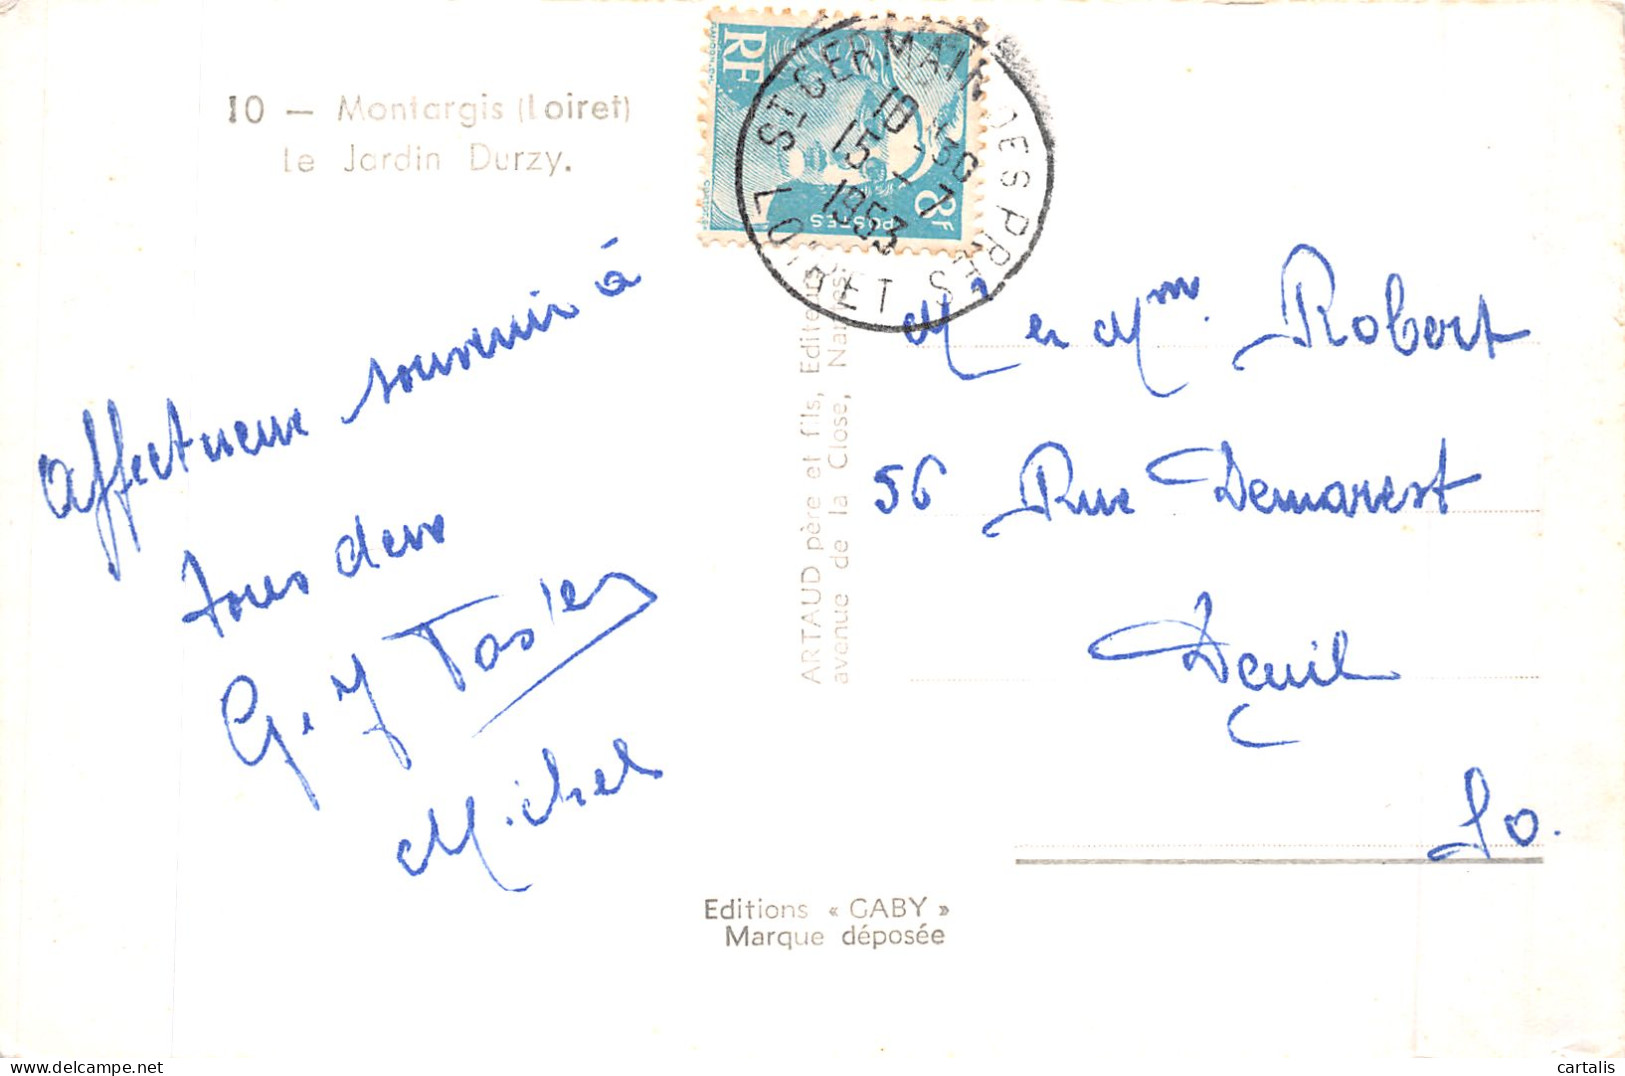 10 — Montargis (Loiret)
Le Jardin Durzy.
RF
8F
POSTES
ST GERMAIN DES PRÈS
10 30
15 - 7
1953
LOIRET
Affectueux souvenir à
tous deux
G. J
Michel
ARTAUD père et fils, Editeurs
avenue de la Close, Nantes
Mr et Mme. Robert
56 Rue Demarest
Deuil
So.
Editions « GABY »
Marque déposée
cartalis